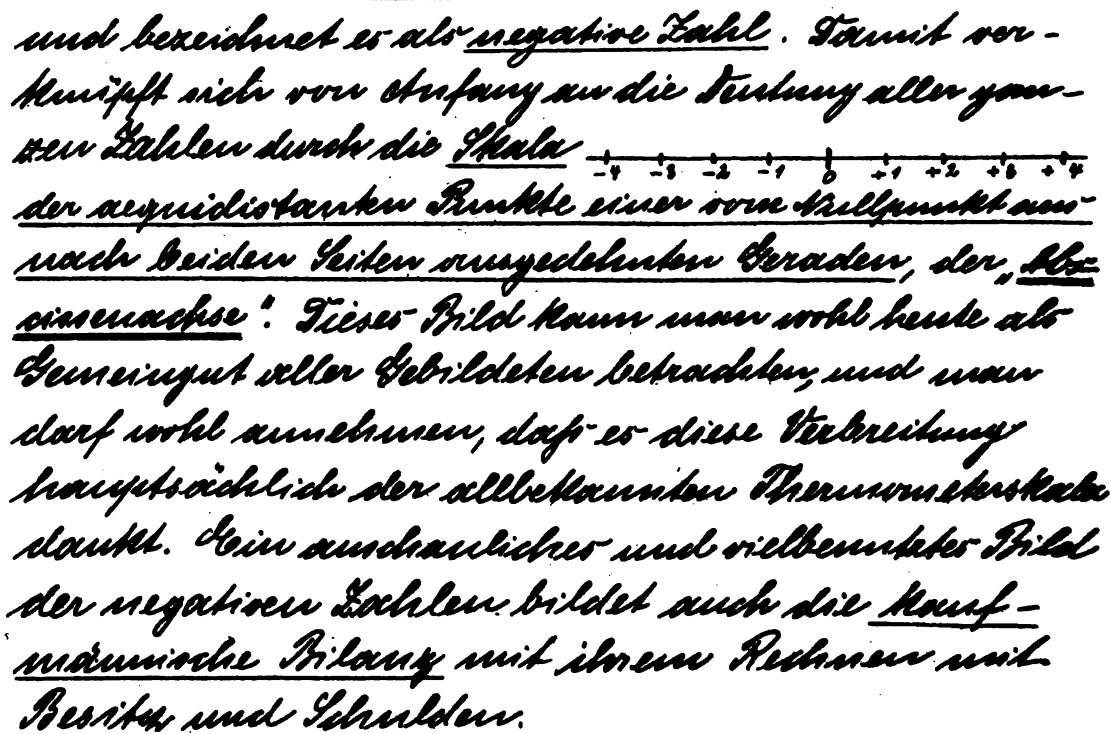 und bezeichnet es als negative Zahl. Damit ver-
knüpft sich von Anfang an die Deutung aller gan-
zen Zahlen durch die Skala
-4 -3 -2 -1 0 +1 +2 +3 +4
der aequidistanten Punkte einer vom Nullpunkt aus
nach beiden Seiten ausgedehnten Geraden, der „Abs-
cissenachse“. Dieses Bild kann man wohl heute als
Gemeingut aller Gebildeten betrachten, und man
darf wohl annehmen, daß es diese Verbreitung
hauptsächlich der allbekannten Thermometerskala
dankt. Ein anschauliches und vielbenutztes Bild
der negativen Zahlen bildet auch die kauf-
männische Bilanz mit ihrem Rechnen mit
Besitz und Schulden.